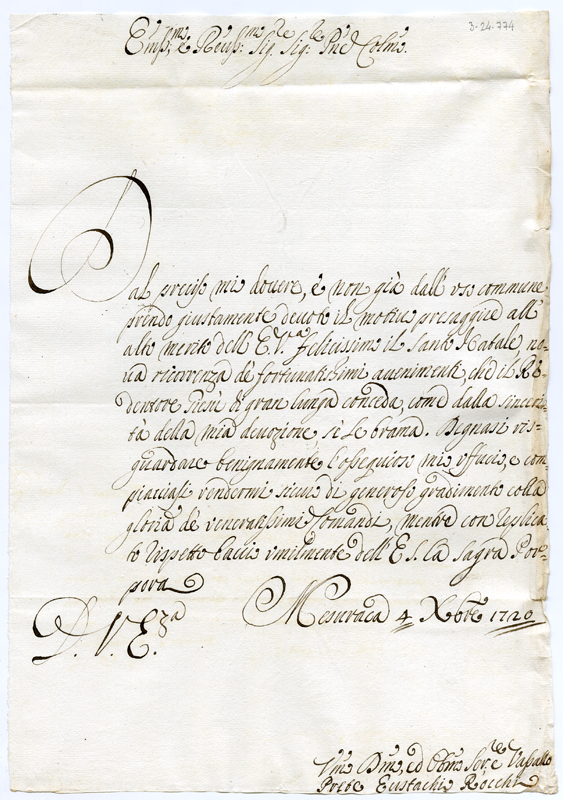 3-24-774
Em̃o, e Reũmo Sig.re Sig.re Pñe Colmo.
Dal preciso mio douere, e non già dall' vso commune
prendo giustamente deuoto il motiuo presaggire all'
alto merito dell' E. V.ra felicissimo il Santo Natale, no-
ua ricorrenza de' fortunatissimi auuenimenti, che il Re-
dentore Giesù di gran lunga conceda, come dalla sinceri-
tà della mia deuozione, si le brama. Degnasi ris-
guardare benignamente l'ossequioso mio vfficio, e com-
piacciasi rendermi sicuro di generoso gradimento colla
gloria de' veneratissimi Comandi, mentre con replica-
to rispetto baccio vmilmente dell' E. S. la Sagra Por-
pora
D. V. E.za Mesuraca 4 Xbre 1720
Vmo Dmo, ed Obmo Ser.re Vassallo
Prete Eustachio Rocchi